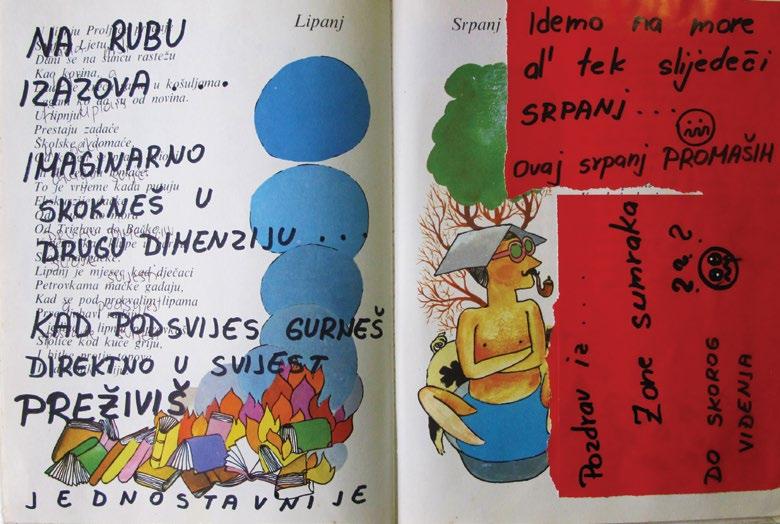 Lipanj
NA RUBU
IZAZOVA . . .
IMAGINARNO
SKOKNEŠ U
DRUGU DIMENZIJU . . .
KAD PODSVIJES GURNEŠ
DIREKTNO U SVIJEST
PREŽIVIŠ
JEDNOSTAVNIJE
Ljetu
Dani se na suncu rastežu
Kao kovina,
u košuljama
su od novina.
U lipnju
Prestaju zadaće
Školske i domaće
To je vrijeme kada putuju
Od Triglava do Bačke
Lipanj je mjesec kad dječaci
Petrovkama mačke gađaju,
Kad se pod procvalim lipama
Stolice kod kuće griju,
Srpanj
Idemo na more
al' tek slijedeči
SRPANJ . . .
Ovaj srpanj PROMAŠIH
Pozdrav iz . . . .
Zone sumraka
???
DO SKOROG
VIĐENJA